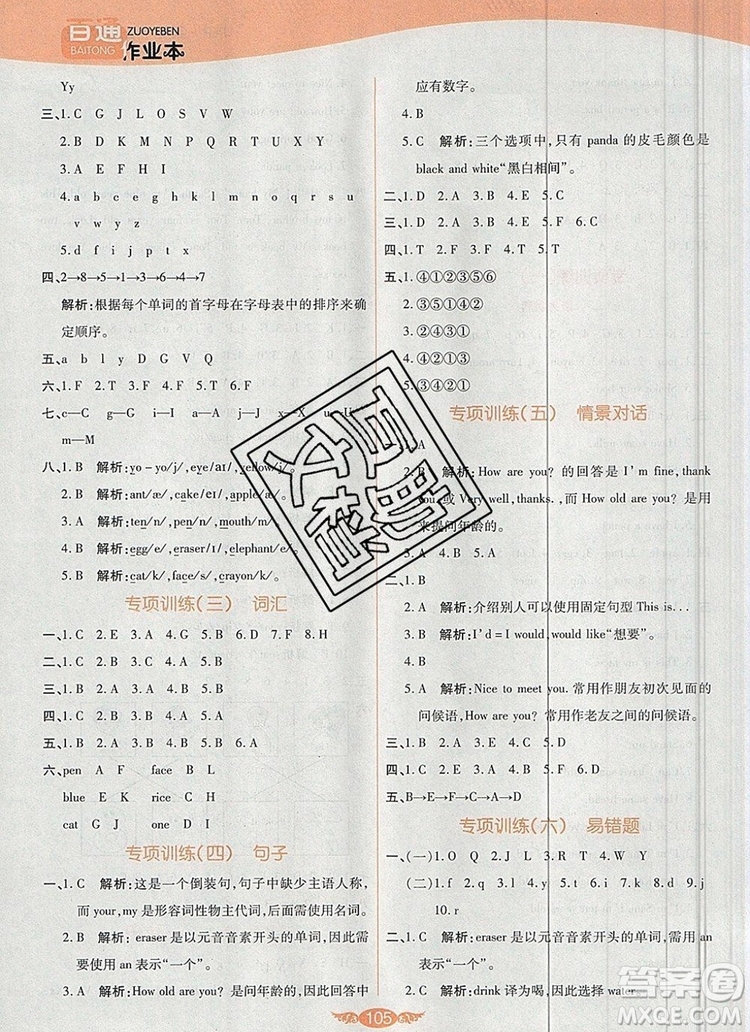 百通
BAITONG
ZUOYEBEN
作业本
Yy
三、1.C G J L O S V W
2.B D K M N P Q R T U X Y
3.A E F H I
4.a b c e g h i k l m n o q r s u
v w y z
5.d f i j p t x
四、2→8→5→1→3→6→4→7
解析:根据每个单词的首字母在字母表中的排序来确
定顺序。
五、a b l y D G V Q
六、1.F 2.T 3.F 4.T 5.T 6.F
七、c—C f—F e—E a—A j—J i—I
m—M
八、1.B 解析:yo-yo/j/,eye/aɪ/,yellow/j/。
2.B 解析:ant/æ/,cake/eɪ/,apple/æ/。
3.A 解析:ten/n/,pen/n/,mouth/m/。
4.B 解析:egg/e/,eraser/ɪ/,elephant/e/。
5.B 解析:cat/k/,face/s/,crayon/k/。
专项训练(三) 词汇
一、1.C 2.E 3.A 4.G 5.B 6.D 7.F 8.H
二、1.B 2.A 3.A 4.A 5.B
三、1.B 2.C 3.C 4.A 5.A
四、1.C 2.B 3.A 4.B 5.B
五、1.B 2.B 3.C 4.A 5.C
六、pen A face B L
blue E rice K
cat G one D
专项训练(四) 句子
一、1.C 解析:这是一个倒装句,句子中缺少主语人称,
而 your,my 是形容词性物主代词,后面应使用名词。
2.B 解析:eraser 是以元音音素开头的单词,因此需
要使用 an 表示“一个”。
3.A 解析:How old are you? 是问年龄的,回答中
应有数字。
4.B
5.C 解析:三个选项中,只有 panda 的皮毛颜色是
black and white“黑白相间”。
二、1.D 2.A 3.B 4.E 5.C
三、1.C 2.A 3.D 4.E 5.F 6.B
四、1.T 2.F 3.F 4.T 5.T
五、1.④①②③⑤⑥
2.④③①②
3.②④③①
4.④②①③
5.③④②①
专项训练(五) 情景对话
一、1.A
2.B 解析:How are you? 的回答是 I'm fine, thank
you. 或 Very well, thanks.,而 How old are you? 是用
来提问年龄的。
3.A 4.B 5.A
二、1.B
2.A 解析:介绍别人可以使用固定句型 This is...
3.B 解析:I'd=I would, would like“想要”。
4.B
5.A 解析:Nice to meet you. 常用作朋友初次见面的
问候语,How are you? 常用作老友之间的问候语。
三、1.B 2.A 3.B 4.A 5.A
四、1.C 2.E 3.A 4.B 5.D
五、B→E→F→C→A→D
专项训练(六) 易错题
10.r
2.B 解析:eraser 是以元音音素开头的单词,需要用 an
表示“一个”。
3.C 解析:drink 译为喝,因此选择水。
105
答案圈
MXQE.COM